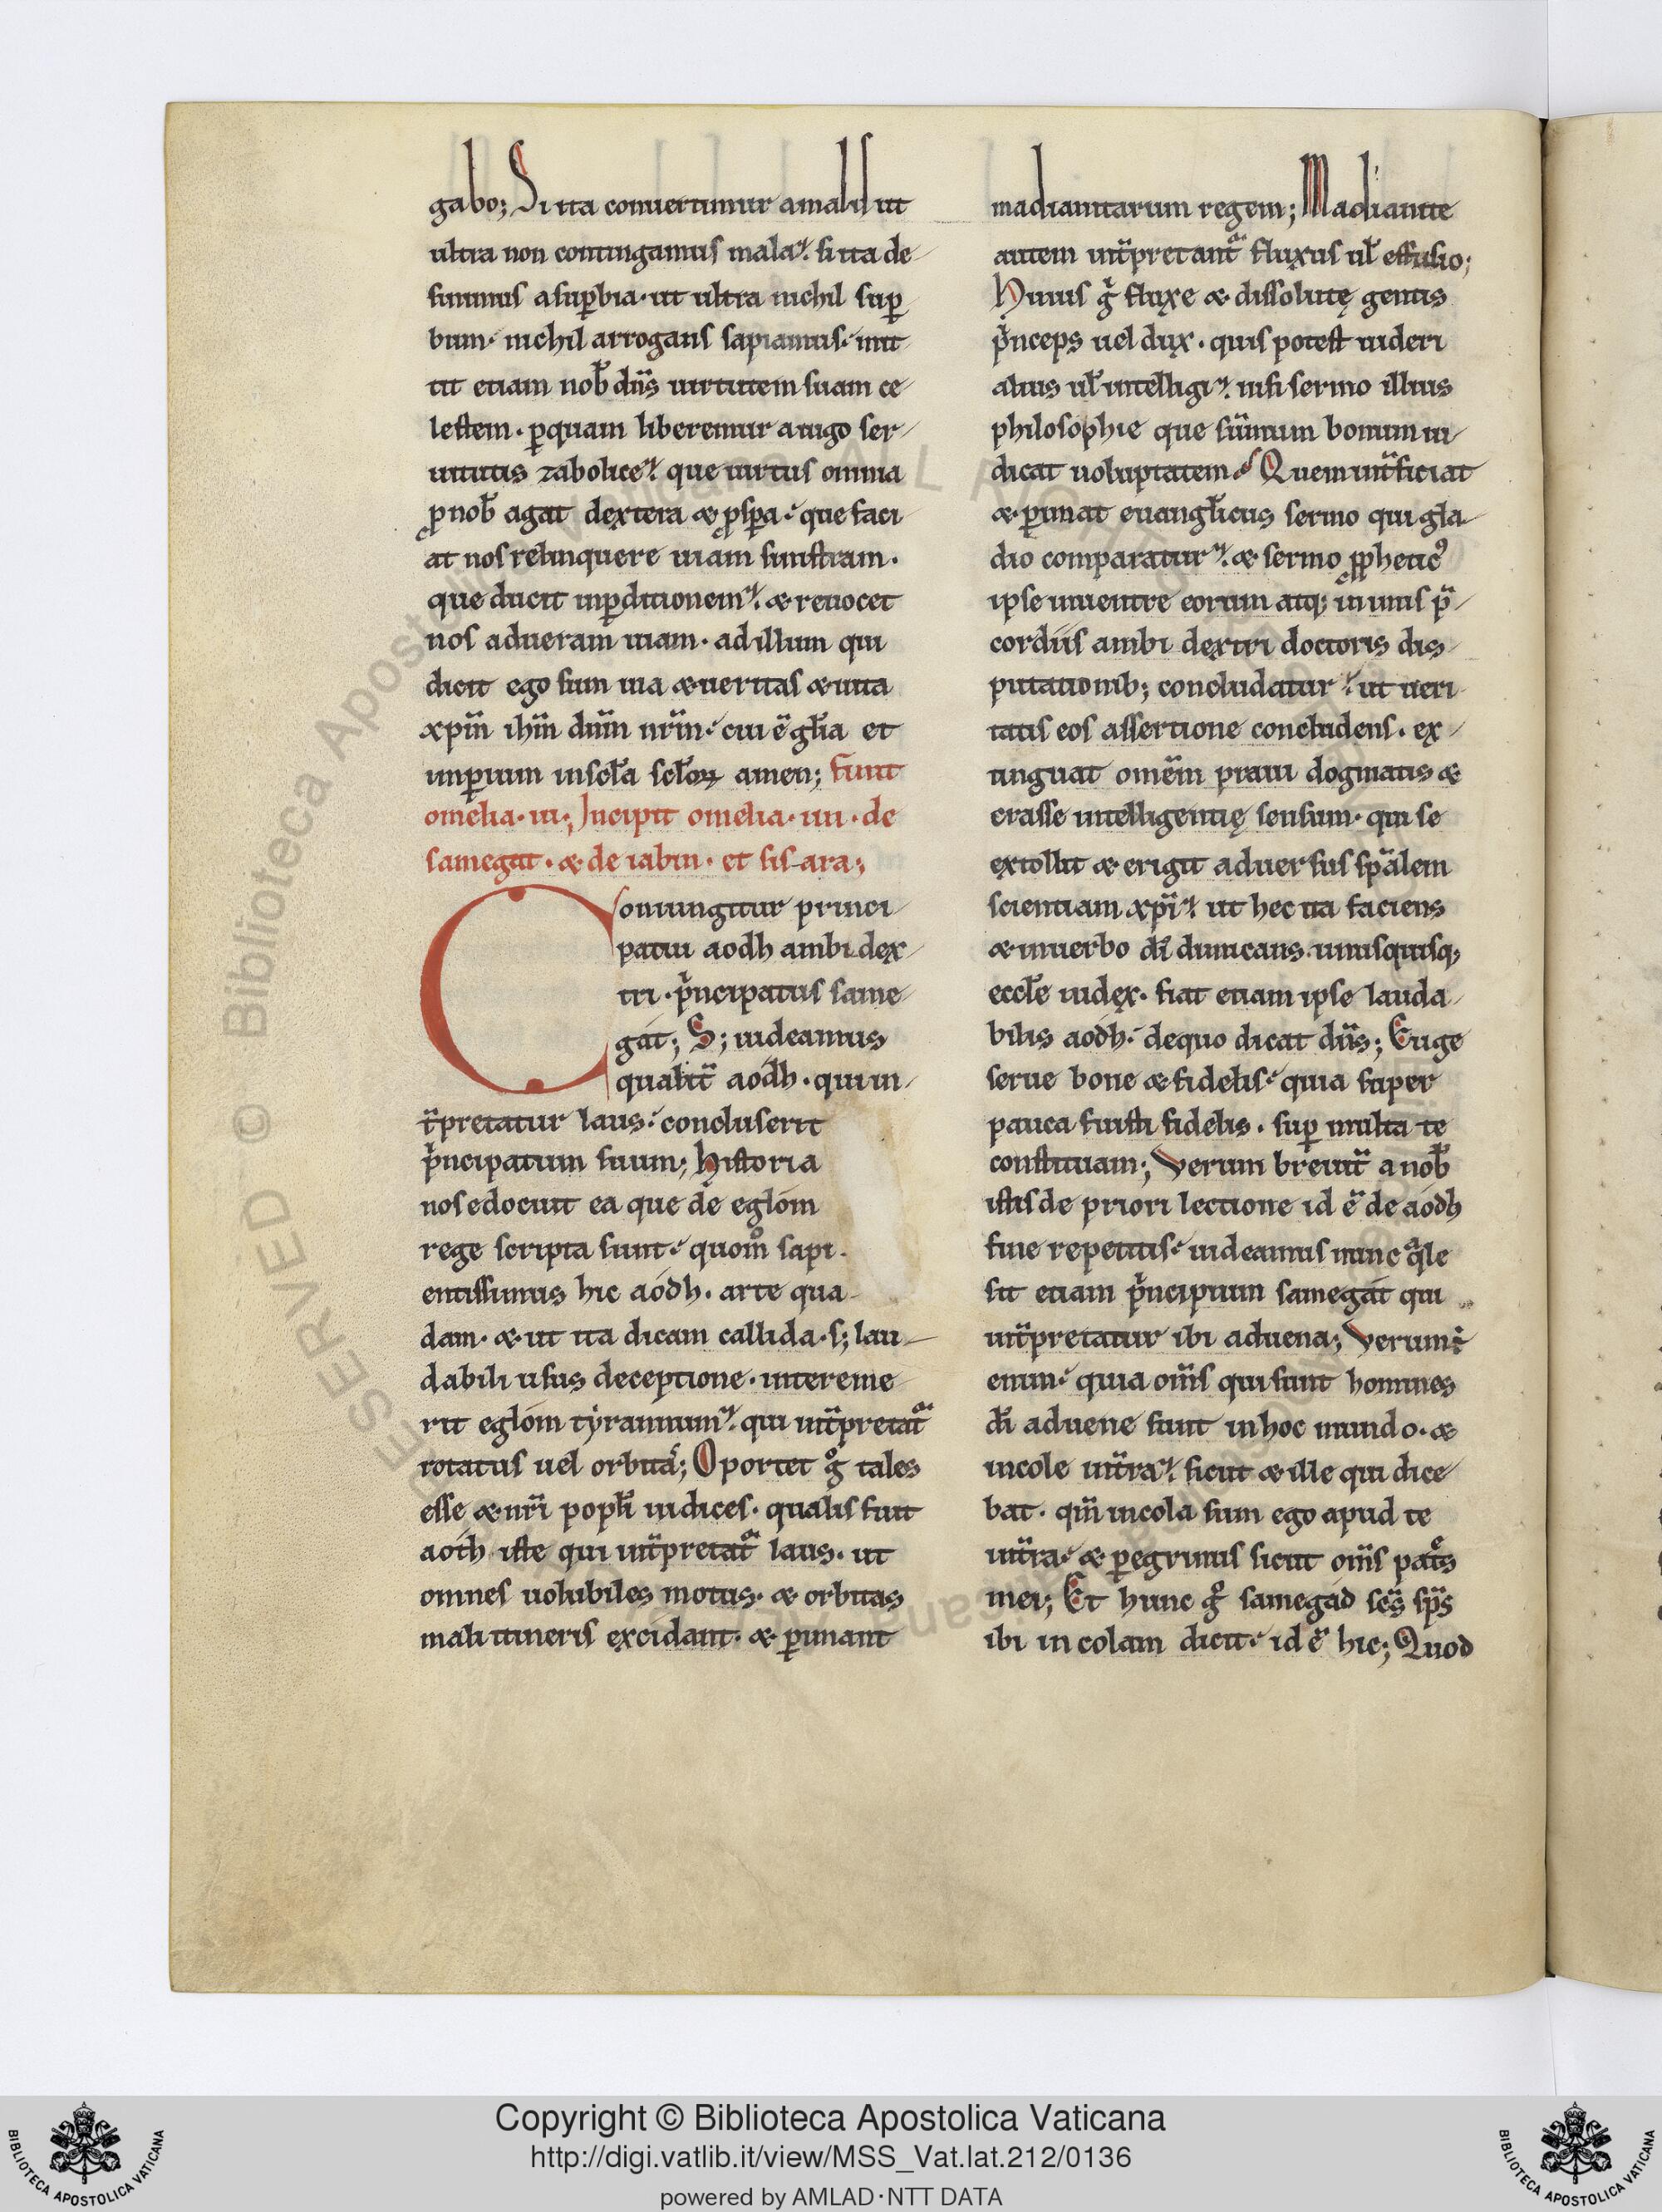 gabo; Si ita conuertimur amalis ut
ultra non contingamus mala. si ita de
sinimus asup̄bia. ut ultra nichil sup̄
bum. nichil arrogans sapiamus. mit
tit etiam nob̄ dn̄s uirtutem suam ce
lestem. ꝑquam liberemur aiugo ser
uitutis zabolice. que uirtus omnia
ꝓnob̄ agat dextera & ꝓsꝑa. que faci
at nos relinquere uiam sinistram.
que ducit inꝑditionem. & reuocet
nos adueram uiam. adillum qui
dicit ego sum uia & ueritas & uita
xpm̄ ihm̄ dnm̄ nrm̄. cui ē gl̄ia et
imꝑium insct̄a scl̄oꝝ amen; finit
omelia. iii.; Incipit omelia. iiii. de
samegat. & de iabin. et sis ara;
Coniungitur princi
patui aodh ambidex
tri. pͥncipatus same
gat; S; uideamus
qualit̄ aodh. qui in
t̄pretatur laus. concluserit
pͥncipatum suum; historia
nos edocuit ea que de eglom
rege scripta sunt. quom̊ sapi
entissimus hic aodh. arte qua
dam. & ut ita dicam callida. s; lau
dabili usus deceptione. intereme
rit eglom tyrannum. qui int̄pretat᷑
rotatus uel orbita; Oportet gͦ tales
esse & nr̄i popl̄i iudices. qualis fuit
aoth iste qui int̄pretat᷑ laus. ut
omnes uolubiles motus. & orbitas
mali itineris excidant. & ꝑimant
madianitarum regem; Madianite
autem int̄pretant᷑ fluxus ul̄ effusio;
Huius gͥ fluxe & dissolutę gentis
pͥnceps uel dux. quis potest uideri
alius ul̄ intelligi. nisi sermo illius
philosophie que sūmum bonum iu
dicat uoluptatem. Quem int̄ficiat
& ꝑimat euangl̄icus sermo qui gla
dio comparatur. & sermo ꝓpheticꝰ
ipse inuentre eorum atq; in imis p̄
cordiis ambi dextri doctoris dis
putationib; concludatur. ut ueri
tatis eos assertione concludens. ex
tinguat omēm praui dogmatis &
crasse intelligentię sensum. qui se
extollit & erigit aduersus sp̄alem
scientiam xp̄i. ut hec ita faciens
& inuerbo dī dimicans unusquisq;
eccl̄e iudex. fiat etiam ipse lauda
bilis aodh. dequo dicat dn̄s; Euge
serue bone & fidelis. quia super
pauca fuisti fidelis. suꝑ multa te
constituam; Verum breuit̄ a nob̄
istis de priori lectione id ē de aodh
fine repetitis. uideamus nunc qͣle
sit etiam pͥncipium samegat qui
int̄pretatur ibi aduena; Verum ē
enim. quia om̄s qui sunt homines
dī aduene sunt inhoc mundo. &
incole int̄ra. sicut & ille qui dice
bat. qm̄ incola sum ego apud te
int̄ra. & ꝑegrinus sicut om̄s pat̄s
mei; Et hunc gͦ samegad sc̄s sp̄s
ibi in colam dicit. id ē hic; Quod
Copyright © Biblioteca Apostolica Vaticana
http://digi.vatlib.it/view/MSS_Vat.lat.212/0136
powered by AMLAD·NTT DATA
BIBLIOTECA APOSTOLICA VATICANA
BIBLIOTECA APOSTOLICA VATICANA